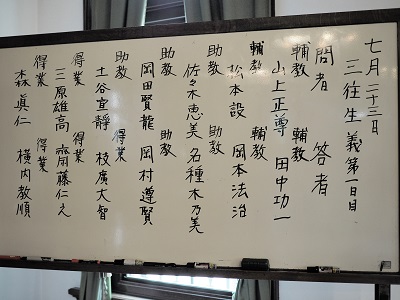 七月二十三日
三往生義第一日目
問者 答者
輔教 輔教
山上正尊 田中功一
輔教 輔教
松本設 岡本法治
助教 助教
佐々木恵美 名種木乃美
助教 助教
岡田賢龍 岡村遵賢
助教 得業
土谷宣靜 枝廣大智
得業 得業
三原雄高 齋藤仁之
得業 得業
森眞仁 横内教順